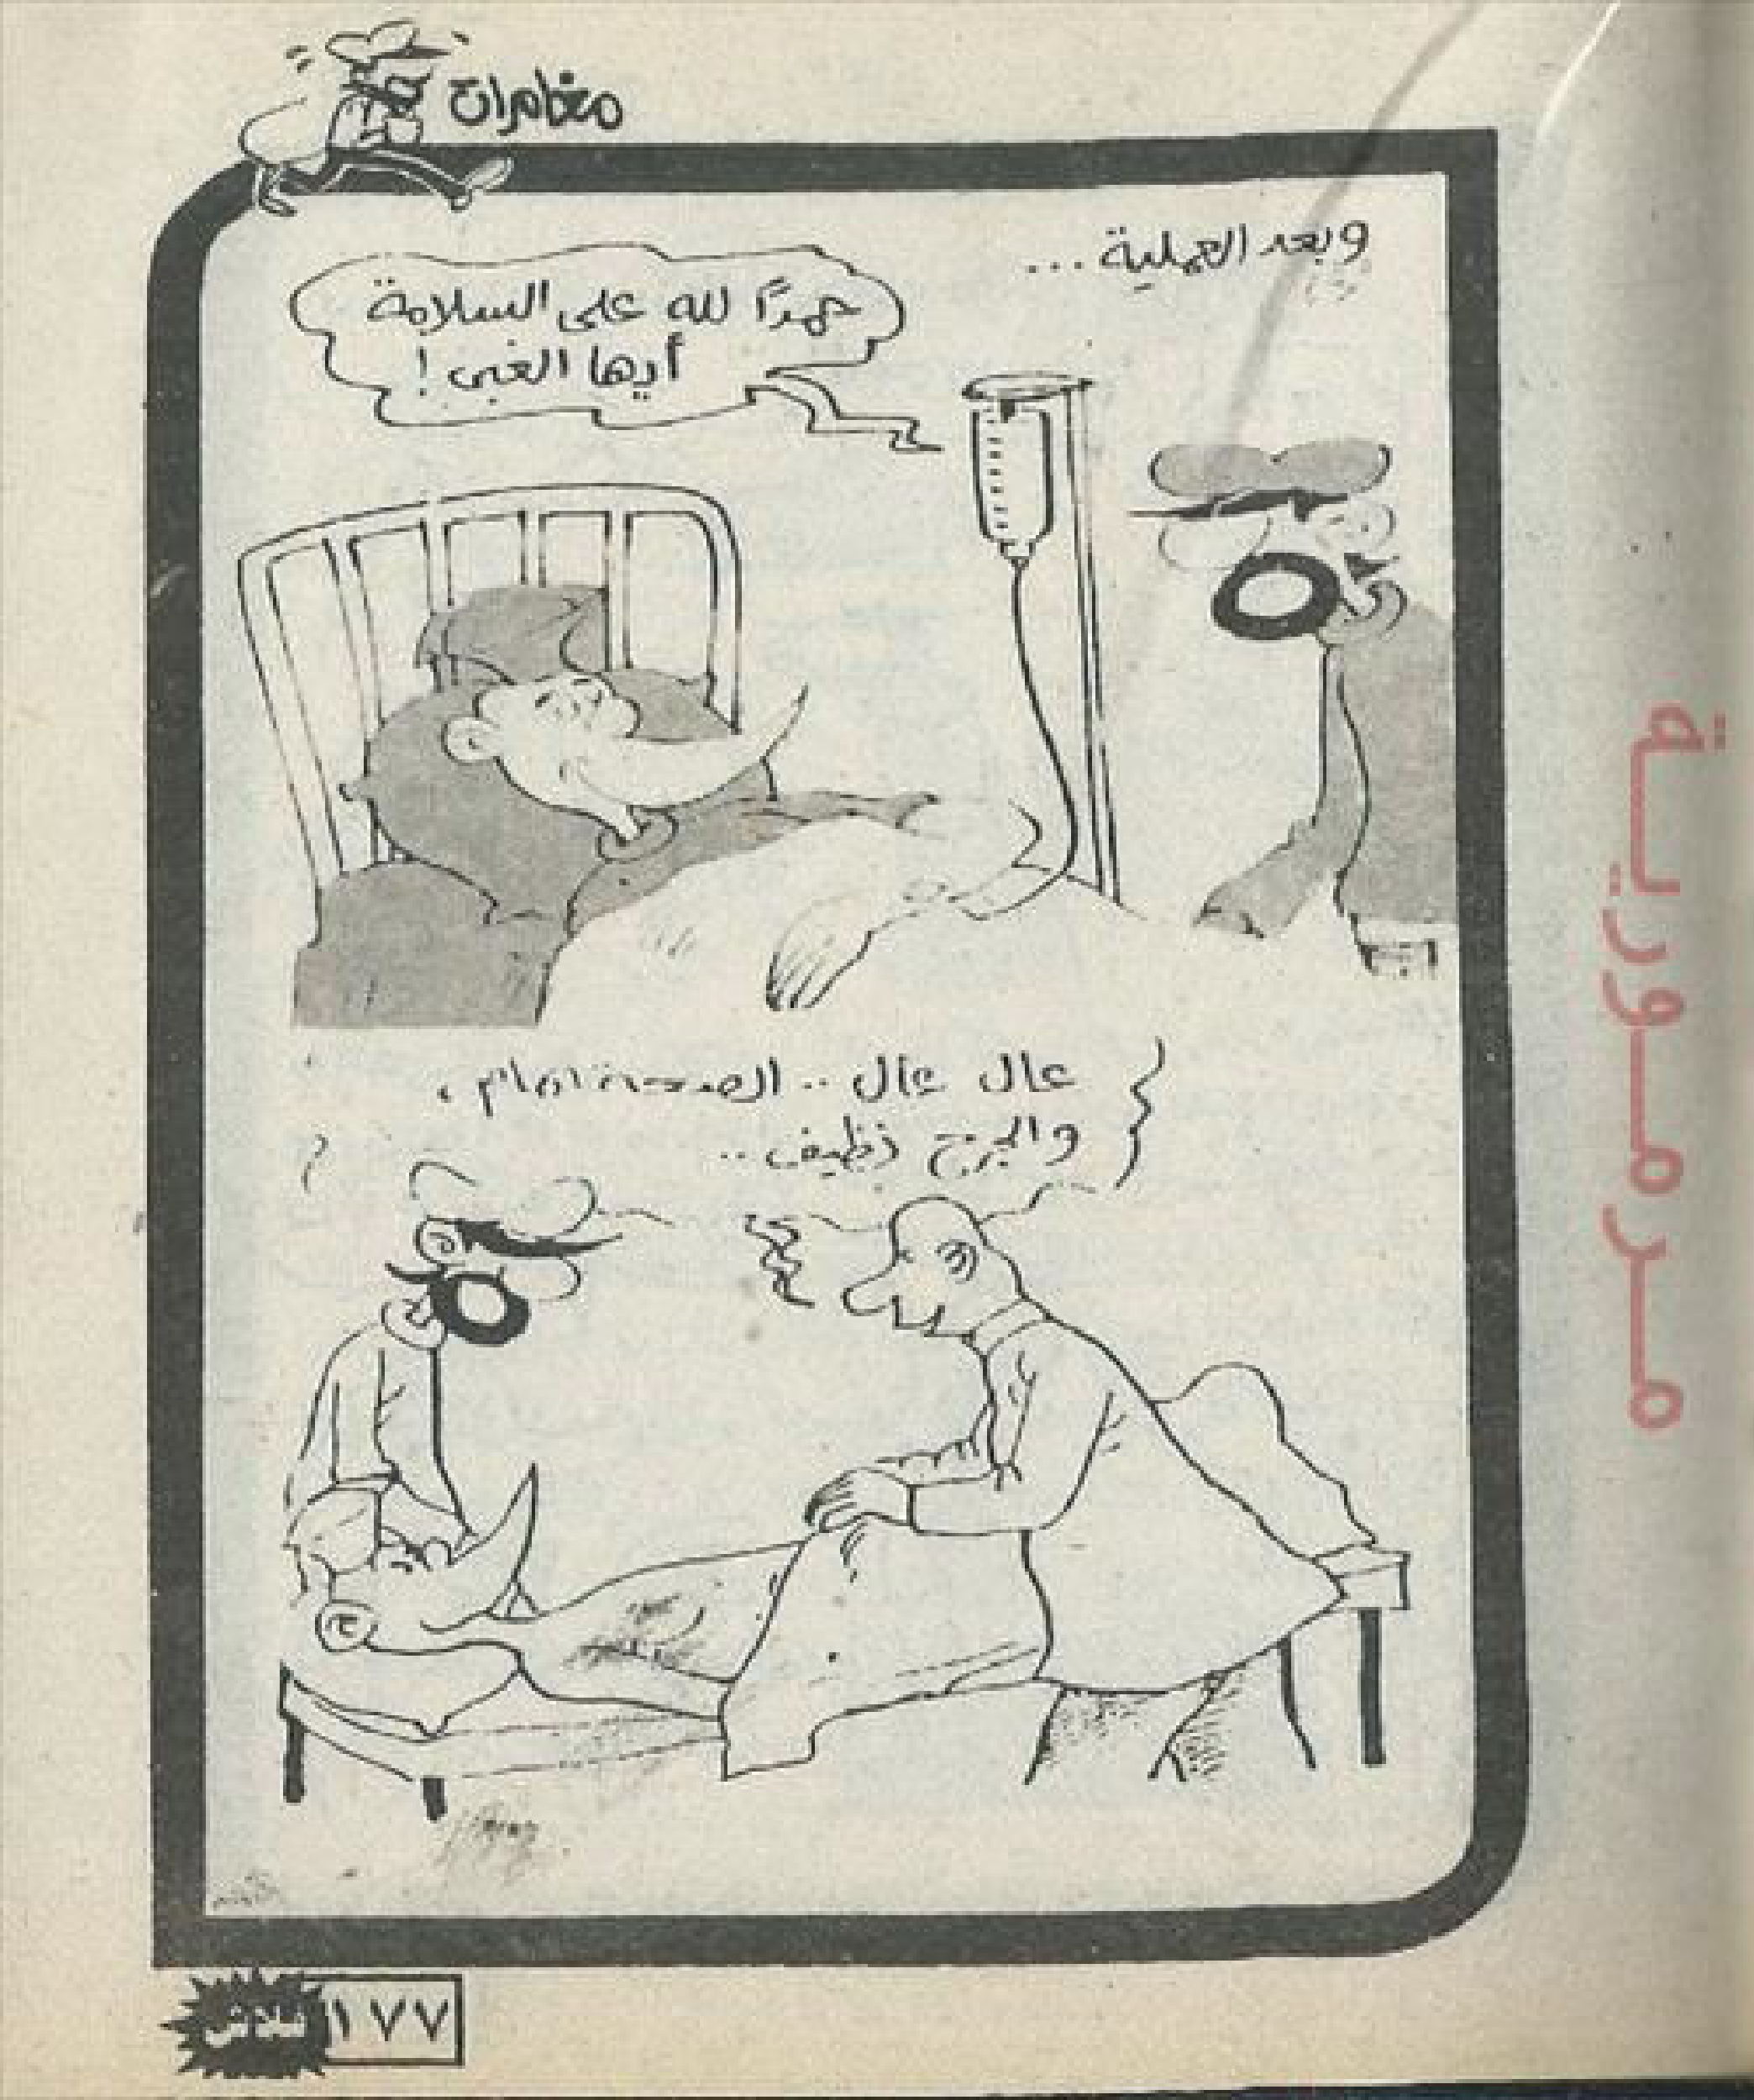 مغامرات
وبعد العملية ...
حمدًا لله على السلامة
أيها الغبى !
عال عال .. الصحة تمام ،
والجرح نظيف ..
مرمورية
فلاش ١٧٧